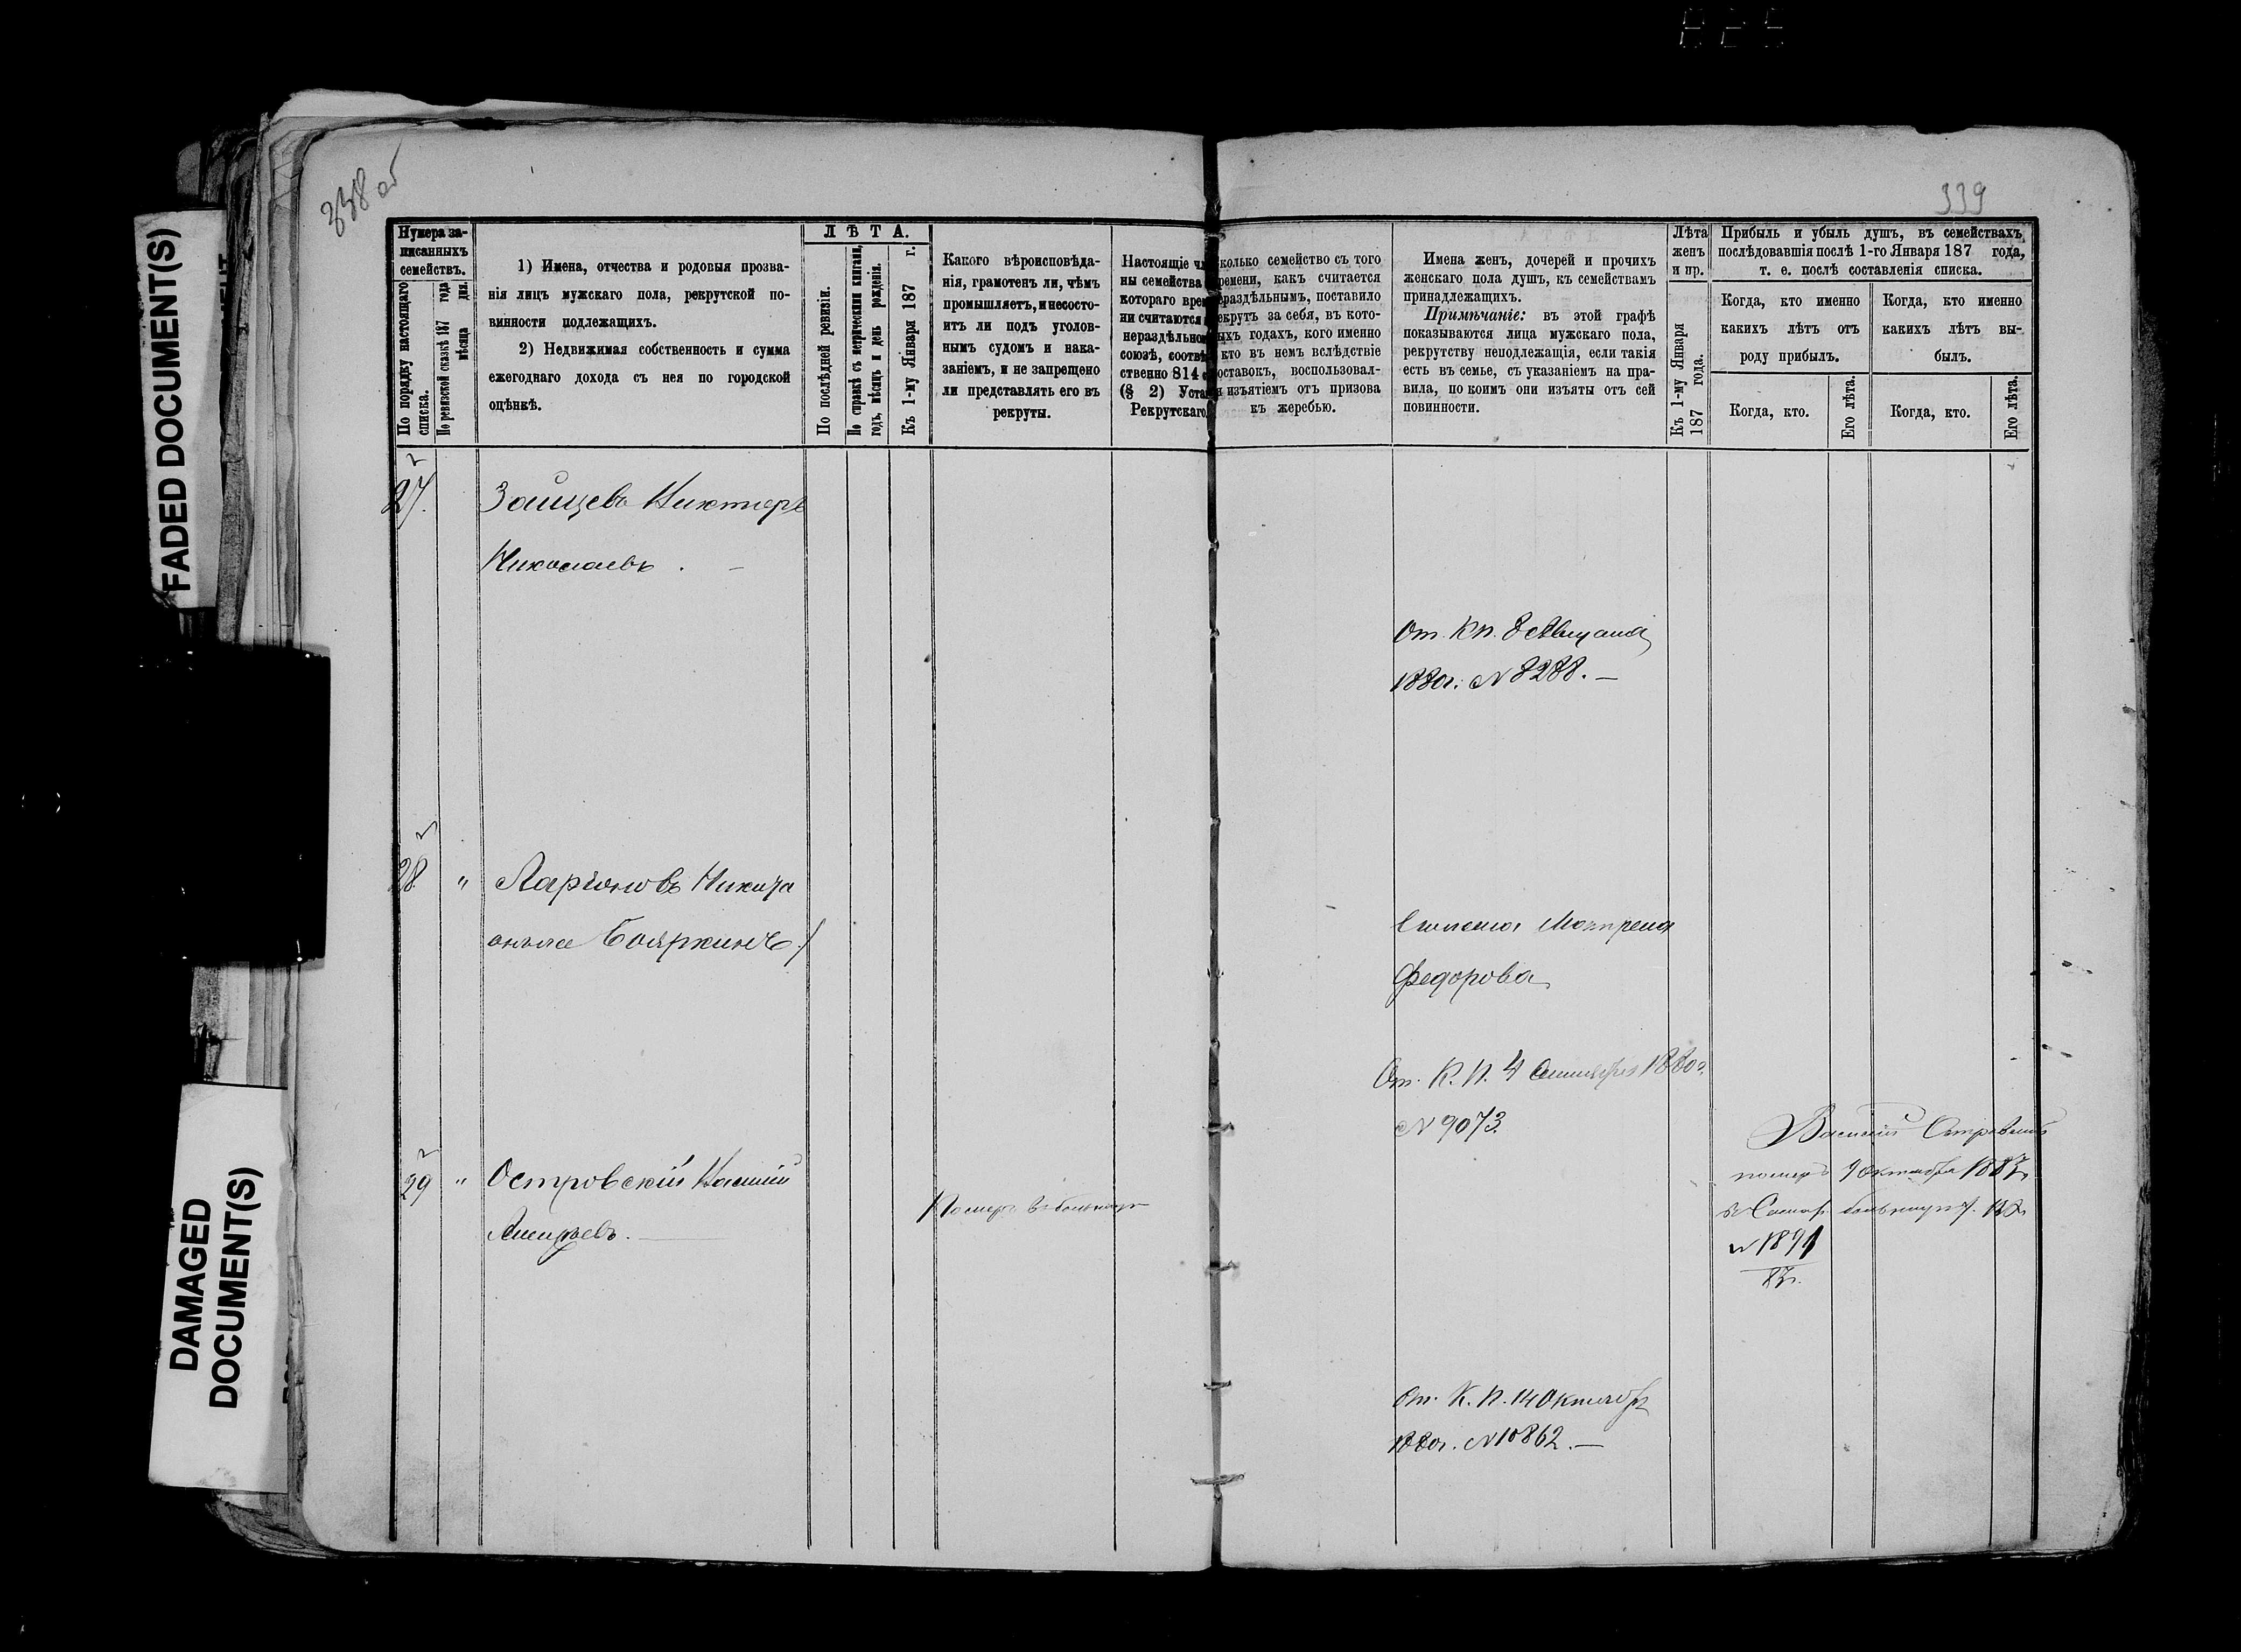 FADED DOCUMENT(S)
DAMAGED
DOCUMENT(S)
338 об
339
Нумера за-
писанныхъ
семействъ.
По порядку настоящаго
списка.
По ревизской сказкѣ 187 года
мѣсяца дня.
1) Имена, отчества и родовыя прозва-
нія лицъ мужскаго пола, рекрутской по-
винности подлежащихъ.
2) Недвижимая собственность и сумма
ежегоднаго дохода съ нея по городской
оцѣнкѣ.
ЛѢТА.
По послѣдней ревизіи.
По справкѣ съ метрическими книгами,
годъ, мѣсяцъ и день рожденія.
Къ 1-му Января 187 г.:
Какого вѣроисповѣда-
нія, грамотенъ ли, чѣмъ
промышляетъ, и несосто-
итъ ли подъ уголов-
нымъ судомъ и нака-
заніемъ, и не запрещено
ли представлять его въ
рекруты.
Настоящіе чл
ны семейства
котораго врем
ни считаются
нераздѣльном
союзѣ, соотвѣ
ственно 814 с
(§ 2) Устава
Рекрутскаго
сколько семейство съ того
ремени, какъ считается
ераздѣльнымъ, поставило
екрутъ за себя, въ кото-
ыхъ годахъ, кого именно
кто въ немъ вслѣдствіе
оставокъ, воспользовал-
я изъятіемъ отъ призова
къ жеребью.
Имена женъ, дочерей и прочихъ
женскаго пола душъ, къ семействам
принадлежащихъ.
Примѣчаніе: въ этой графѣ
показываются лица мужскаго пола,
рекрутству неподлежащія, если такія
есть въ семье, съ указаніемъ на пра-
вила, по коимъ они изъяты отъ сей
повинности.
Лѣта
женъ
и пр.
Къ 1-му Января
187 года.
Прибыль и убыль душъ, въ семействахъ,
послѣдовавшія послѣ 1-го Января 187 года,
т. е. послѣ составленія списка.
Когда, кто именно
какихъ лѣтъ отъ
роду прибылъ.
Когда, кто именно
какихъ лѣтъ вы-
былъ.
Когда, кто.
Его лѣта.
Когда, кто.
Его лѣта.
27. Зайцевъ
Николаевъ . —
От. Кп. 8
1880г. № 8288. —
28 " Ларіоновъ Никита
онъ же Бояркинъ
Матрена
Федорова
От. К. П. 4 1880г.
№ 9073.
29 " Островскій
—
Померъ въ больницѣ
Василій
померъ 9 Октября
въ больницѣ
№ 1891
От. К. П. 14 Октября
1880г. № 10862. —